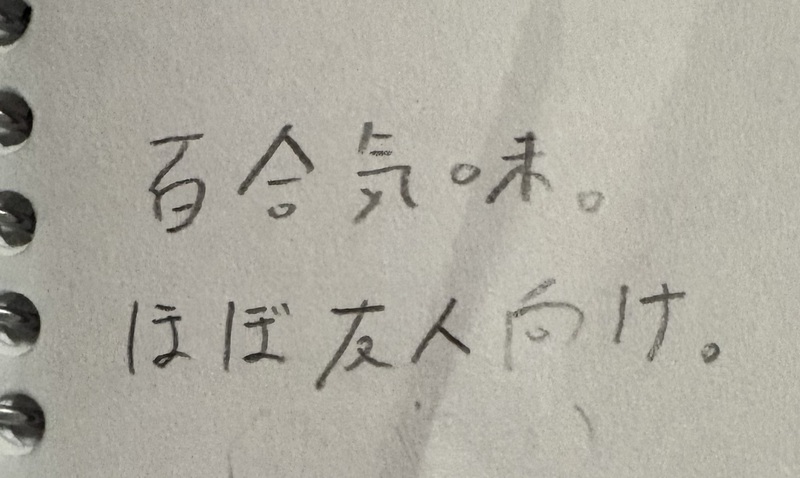 百合気味。
ほぼ友人向け。